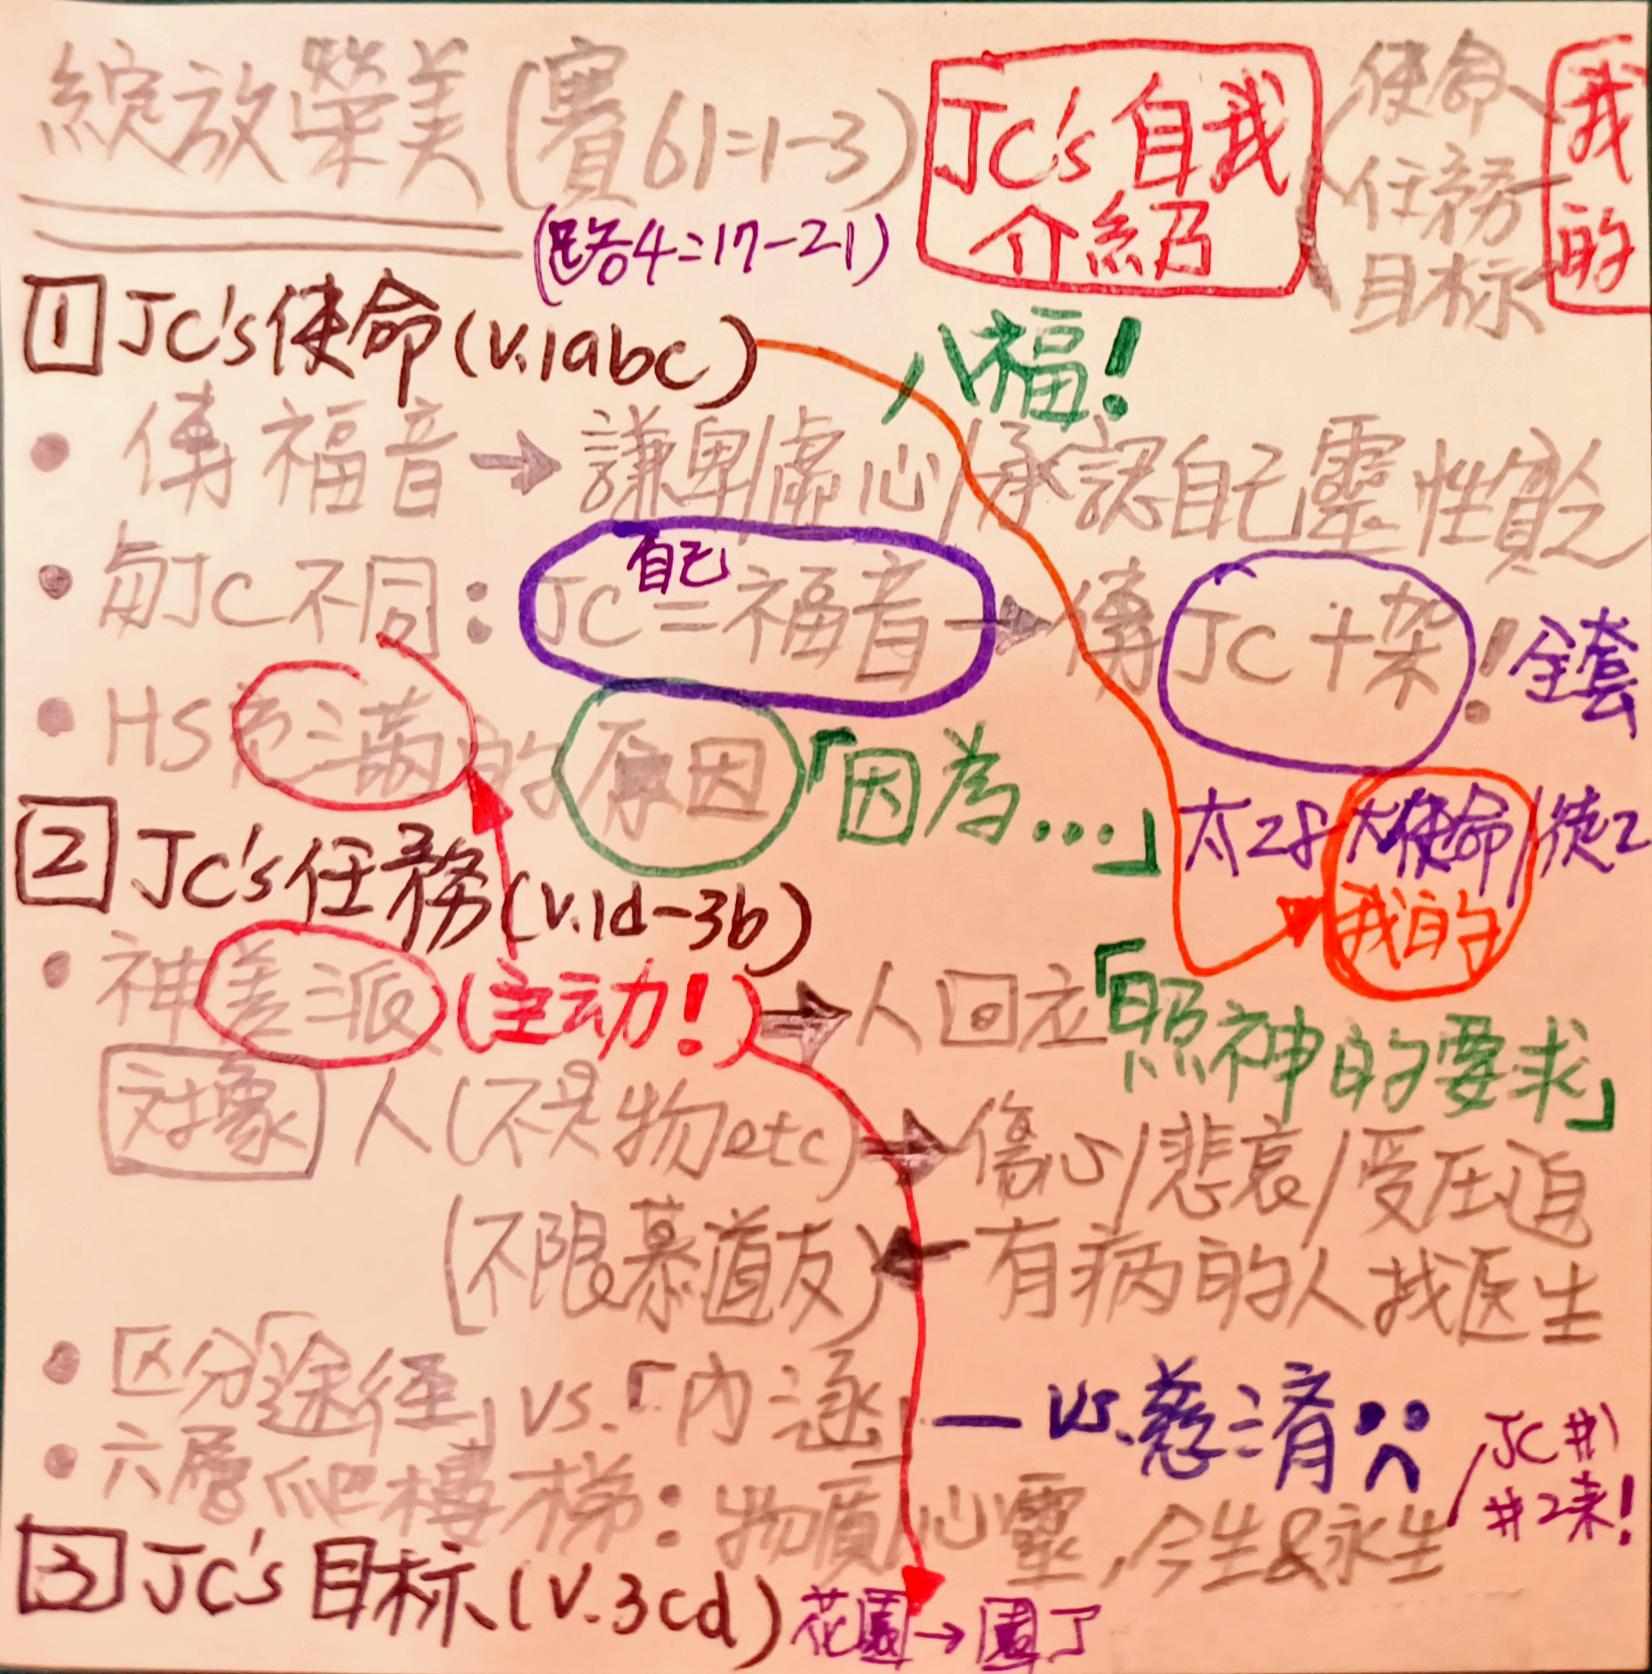 綻放榮美(賽61=1-3)
(路4=17-21)
JC's自我
介紹
使命
任務
目标
我
的
1 JC's使命(v.1abc)
八福!
• 傳福音→謙卑/虛心/承認自己靈性貧乏
• 與JC不同: JC自己=福音→傳JC十架! 全套
• HS充滿的原因「因為...」
太28大使命/徒2
我的
2 JC's任務(v.1d-3b)
• 神差派(主动!)→人回应「照神的要求」
对象 人(不是物etc)→傷心/悲哀/受压迫
(不限慕道友)←有病的人找医生
• 区分「途径」vs.「内涵」—vs.慈済
• 六層爬樓梯:物質,心靈,今生&永生
JC#1
#2来!
3 JC's目标(v.3cd) 花園→園丁